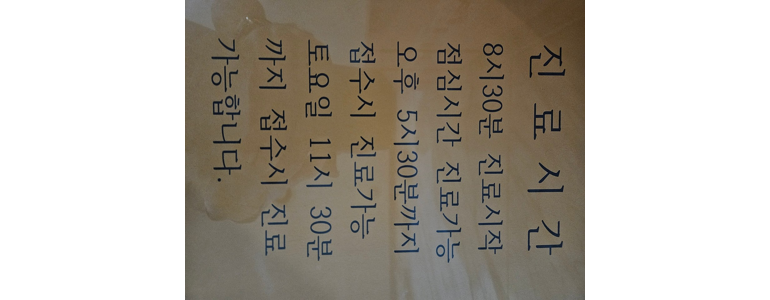 진 료 시 간
8시30분 진료시작
점심시간 진료가능
오후 5시30분까지
접수시 진료가능
토요일 11시 30분
까지 접수시 진료
가능합니다.